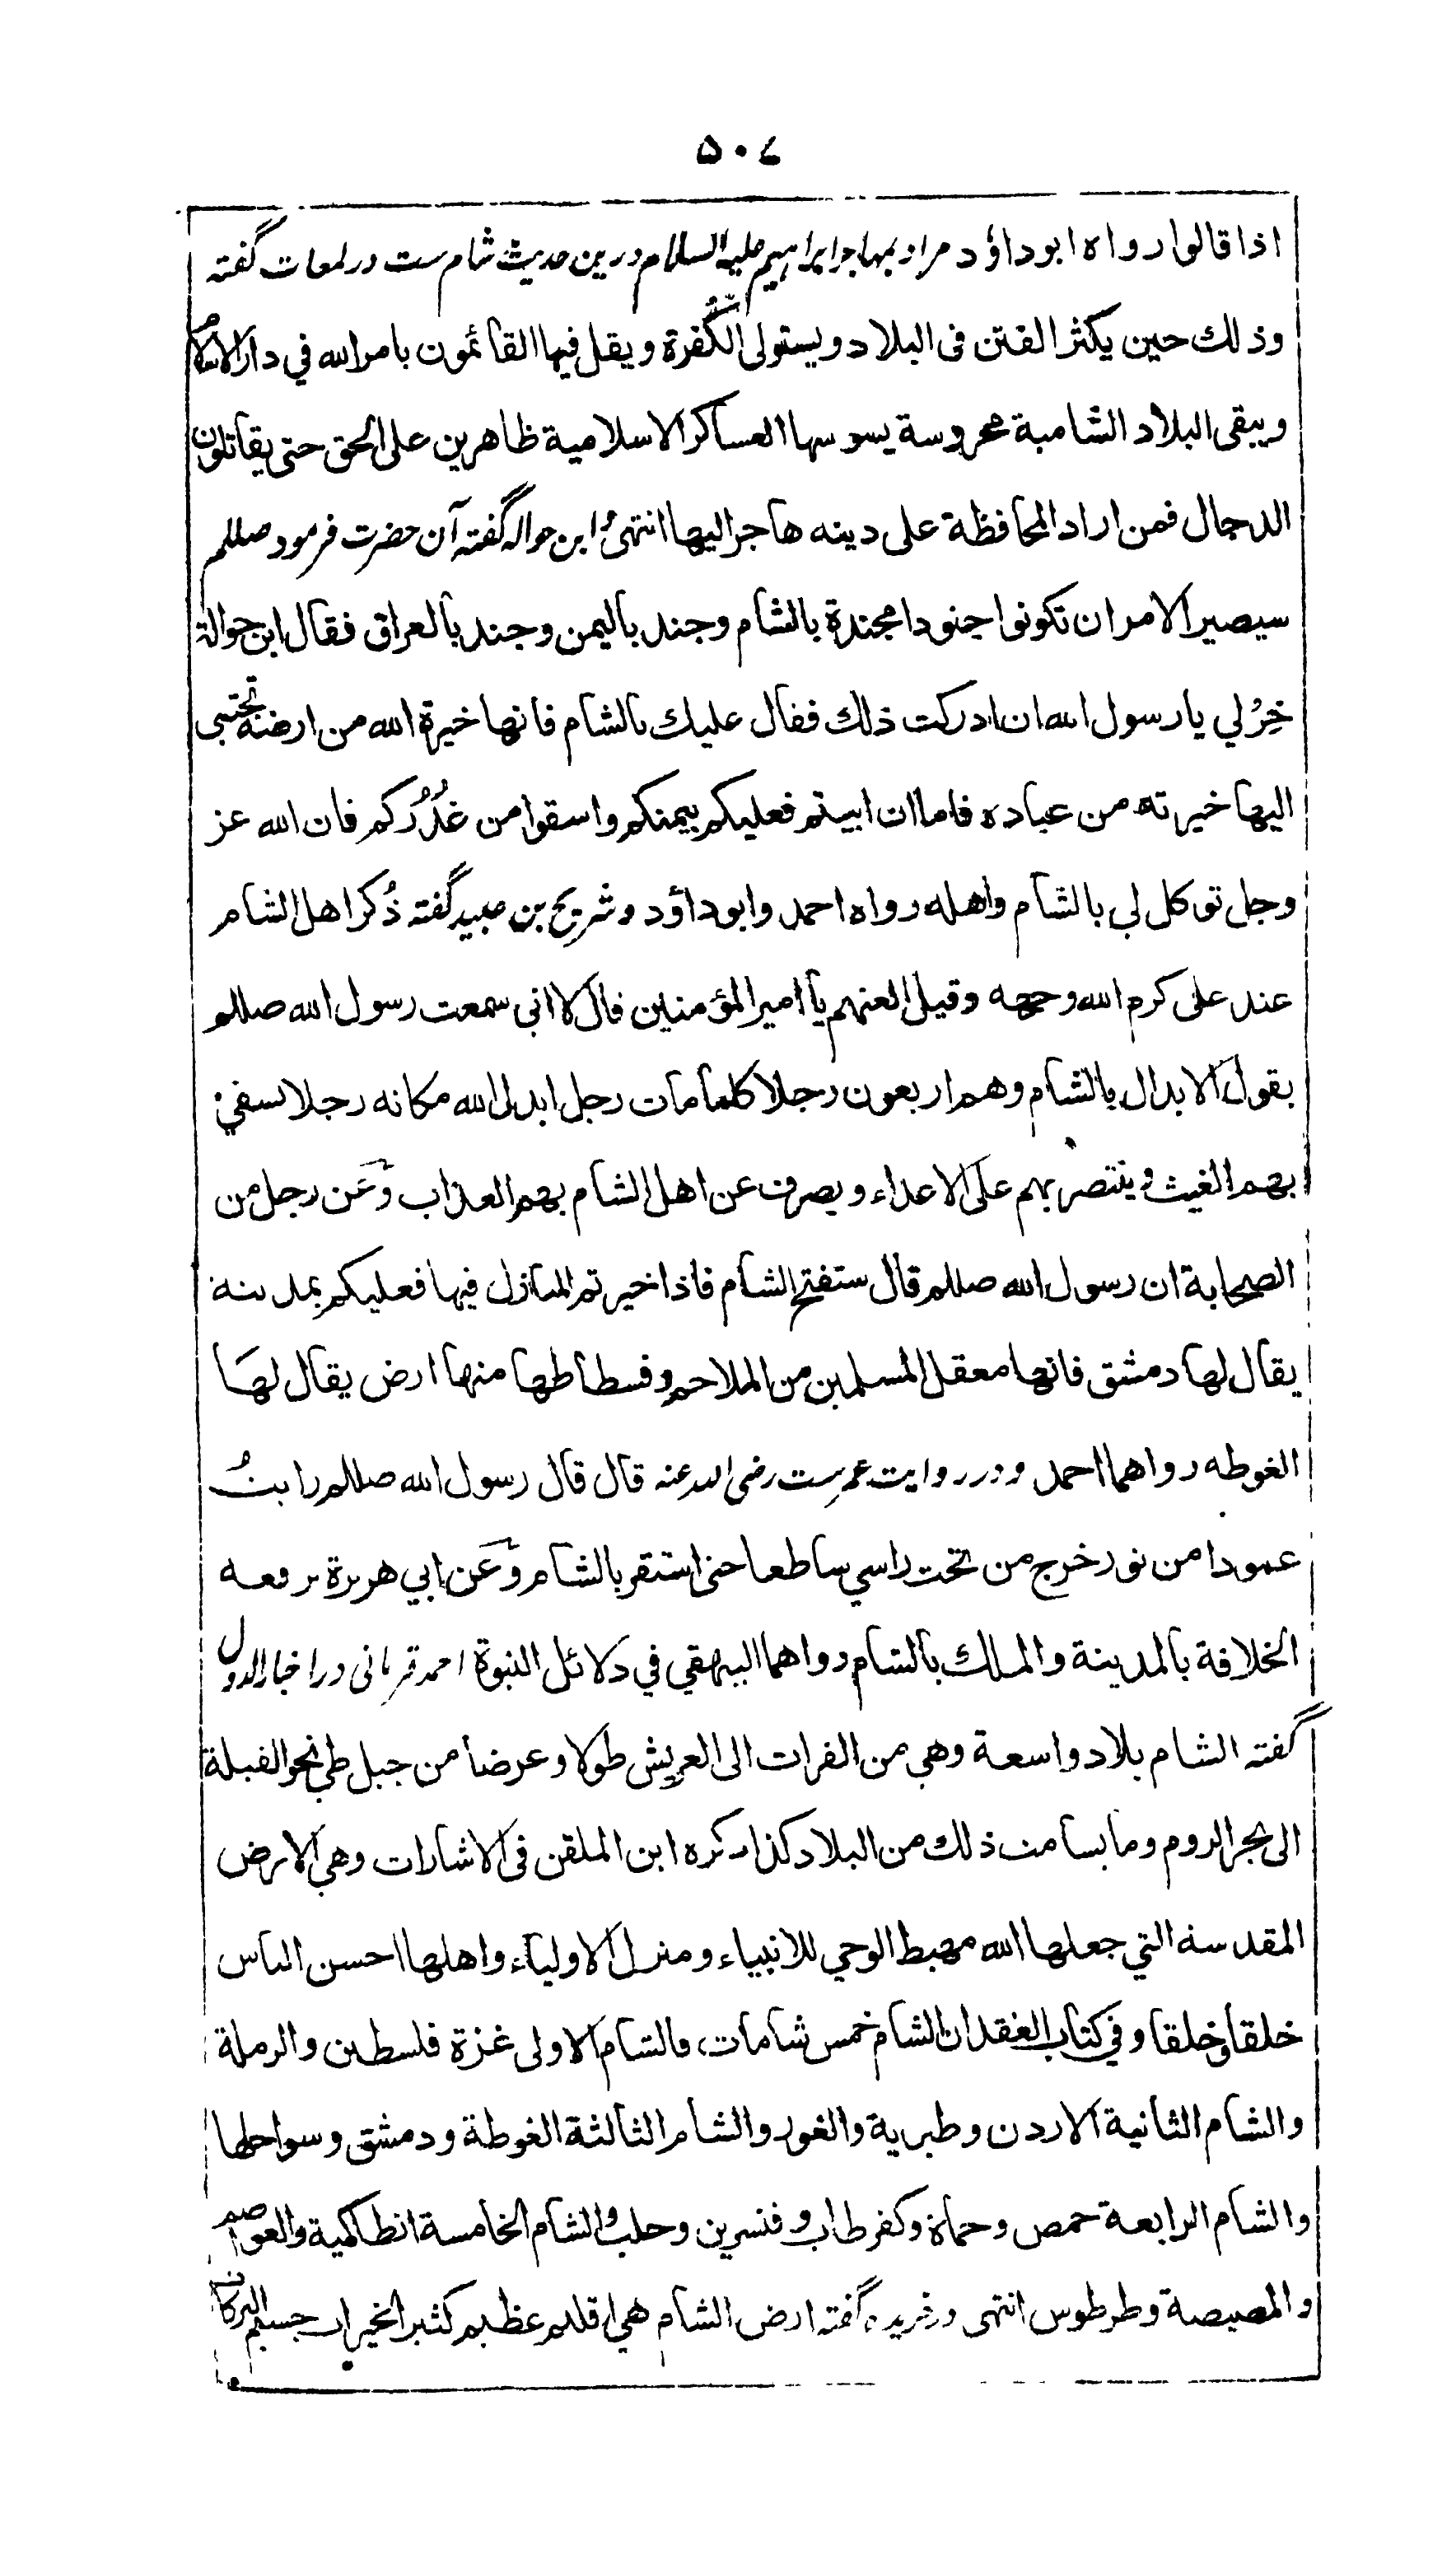 ۵۰۷
اذا قالوا رواه ابوداؤد مراد بمهاجر ابراهیم علیه السلام درین حدیث شام ست در لمعات گفته
وذلك حين يكثر الفتن فى البلاد ويستولى الكفرة ويقل فيها القائمون بامر الله في دار الاسلام
ويبقى البلاد الشامية محروسة يسوسها العساكر الاسلامية ظاهرين على الحق حتى يقاتلون
الدجال فمن اراد المحافظة على دينه هاجر اليها انتهى و ابن حواله گفته آن حضرت فرمود صللم
سيصير الامر ان تكونوا جنودا مجندة بالشام وجند باليمن وجند بالعراق فقال ابن حوالة
خِرْ لي يا رسول الله ان ادركت ذلك فقال عليك بالشام فانها خيرة الله من ارضه تجتبى
اليها خيرته من عباده فاما ان ابيتم فعليكم بيمنكم واسقوا من غُدُرُكم فان الله عز
وجل توكل لى بالشام واهله رواه احمد وابوداؤد و شريح بن عبيد گفته ذُكر اهل الشام
عند على كرم الله وجهه وقيل العنهم يا امير المؤمنين قال لا انى سمعت رسول الله صللم
يقول الابدال بالشام وهم اربعون رجلا كلما مات رجل ابدل الله مكانه رجلا يسقي
بهم الغيث وينتصر بهم على الاعداء ويصرف عن اهل الشام بهم العذاب وَعَن رجل من
الصحابة ان رسول الله صللم قال ستفتح الشام فاذا خيرتم المنازل فيها فعليكم بمدينة
يقال لها دمشق فانها معقل المسلمين من الملاحم وفسطاطها منها ارض يقال لها
الغوطه رواهما احمد و در روایت عمرست رضی الله عنه قال قال رسول الله صللم رايتُ
عمودا من نور خرج من تحت راسي ساطعا حتى استقر بالشام وَعَن ابي هريرة يرفعه
الخلافة بالمدينة والملك بالشام رواهما البيهقي في دلائل النبوة احمد قرمانی در اخبار الدول
گفته الشام بلاد واسعة وهي من الفرات الى العريش طولا وعرضا من جبل طي نحو القبلة
الى بحر الروم وما بسامت ذلك من البلاد كذا ذكره ابن الملقن فى الاشارات وهي الارض
المقدسة التي جعلها الله مهبط الوحي للانبياء ومنزل الاولياء واهلها احسن الناس
خلقا وخلقا وفي كتاب العقد ان الشام خمس شامات، فالشام الاولى غزة فلسطين والرملة
والشام الثانية الاردن وطبرية والغور والشام الثالثة الغوطة ودمشق وسواحلها
والشام الرابعة حمص وحماة وكفرطاب وقنسرين وحلب والشام الخامسة انطاكية والعواصم
والمصيصة وطرطوس انتهى در خریده گفته ارض الشام هي اقليم عظيم كثير الخيرات جسيم البركات